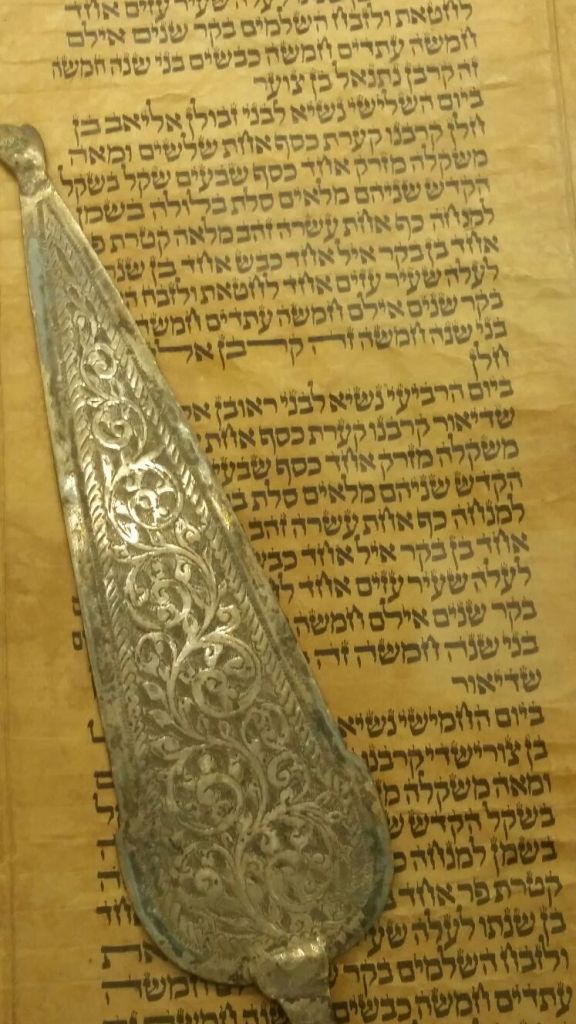 לחטאת ולזבח השלמים בקר שנים אילם
חמשה עתדים חמשה כבשים בני שנה חמשה
זה קרבן נתנאל בן צוער
ביום השלישי נשיא לבני זבולן אליאב בן
חלן קרבנו קערת כסף אחת שלשים ומאה
משקלה מזרק אחד כסף שבעים שקל בשקל
הקדש שניהם מלאים סלת בלולה בשמן
למנחה כף אחת עשרה זהב מלאה קטרת פ
אחד בן בקר איל אחד כבש אחד בן שנ
לעלה שעיר עזים אחד לחטאת ולזבח ה
בקר שנים אילם חמשה עתדים חמשה
בני שנה חמשה זה קרבן אל
חלן
ביום הרביעי נשיא לבני ראובן אל
שדיאור קרבנו קערת כסף אחת
משקלה מזרק אחד כסף שבעי
הקדש שניהם מלאים סלת ב
למנחה כף אחת עשרה זהב
אחד בן בקר איל אחד כבש
לעלה שעיר עזים אחד ל
בקר שנים אילם חמשה
בני שנה חמשה זה
שדיאור
ביום החמישי נשיא
בן צורישדי קרבנו
ומאה משקלה מ
בשקל הקדש ש
בשמן למנחה כ
קטרת פר אחד
בן שנתו לעלה שעי
ולזבח השלמים בקר
עתדים חמשה כבשים